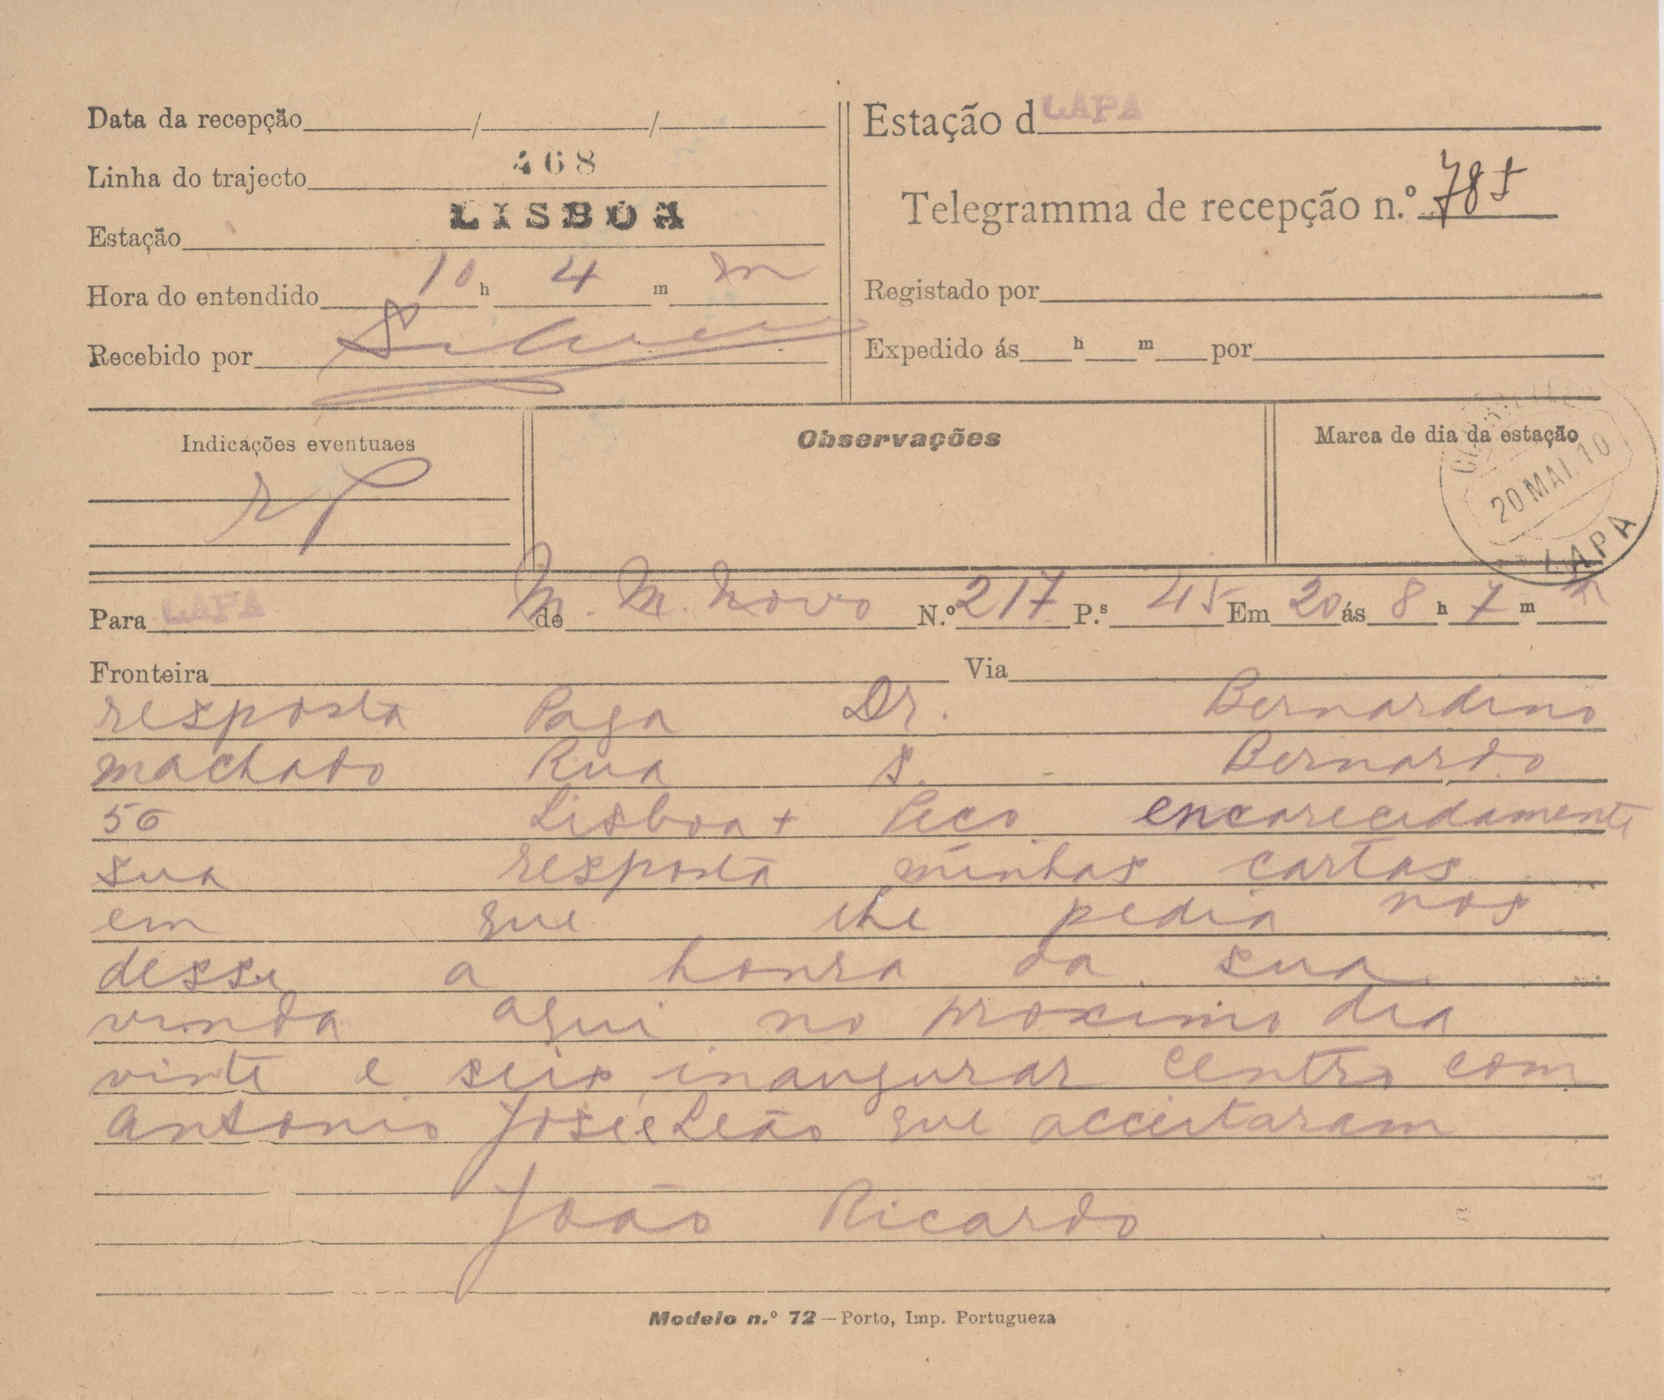 Data da recepção / /
Linha do trajecto 468
Estação LISBOA
Hora do entendido 10 h 4 m m
Recebido por
Estação d LAPA
Telegramma de recepção n.º 785
Registado por
Expedido ás h m por
Indicações eventuaes
rp
Observações
Marca de dia da estação
20 MAI. 10
LAPA
Para LAPA de M. M. Novo N.º 217 P.s 45 Em 20 ás 8 h 7 m
Fronteira Via
resposta Paga Dr. Bernardino
machado Rua S. Bernardo
56 Lisboa + Peço encarecidamente
sua resposta minhas cartas
em que lhe pedia nos
desse a honra da sua
vinda aqui no proximo dia
vinte e seis inaugurar centro com
Antonio José e Leão que acceitaram
João Ricardo
Modelo n.º 72 — Porto, Imp. Portugueza